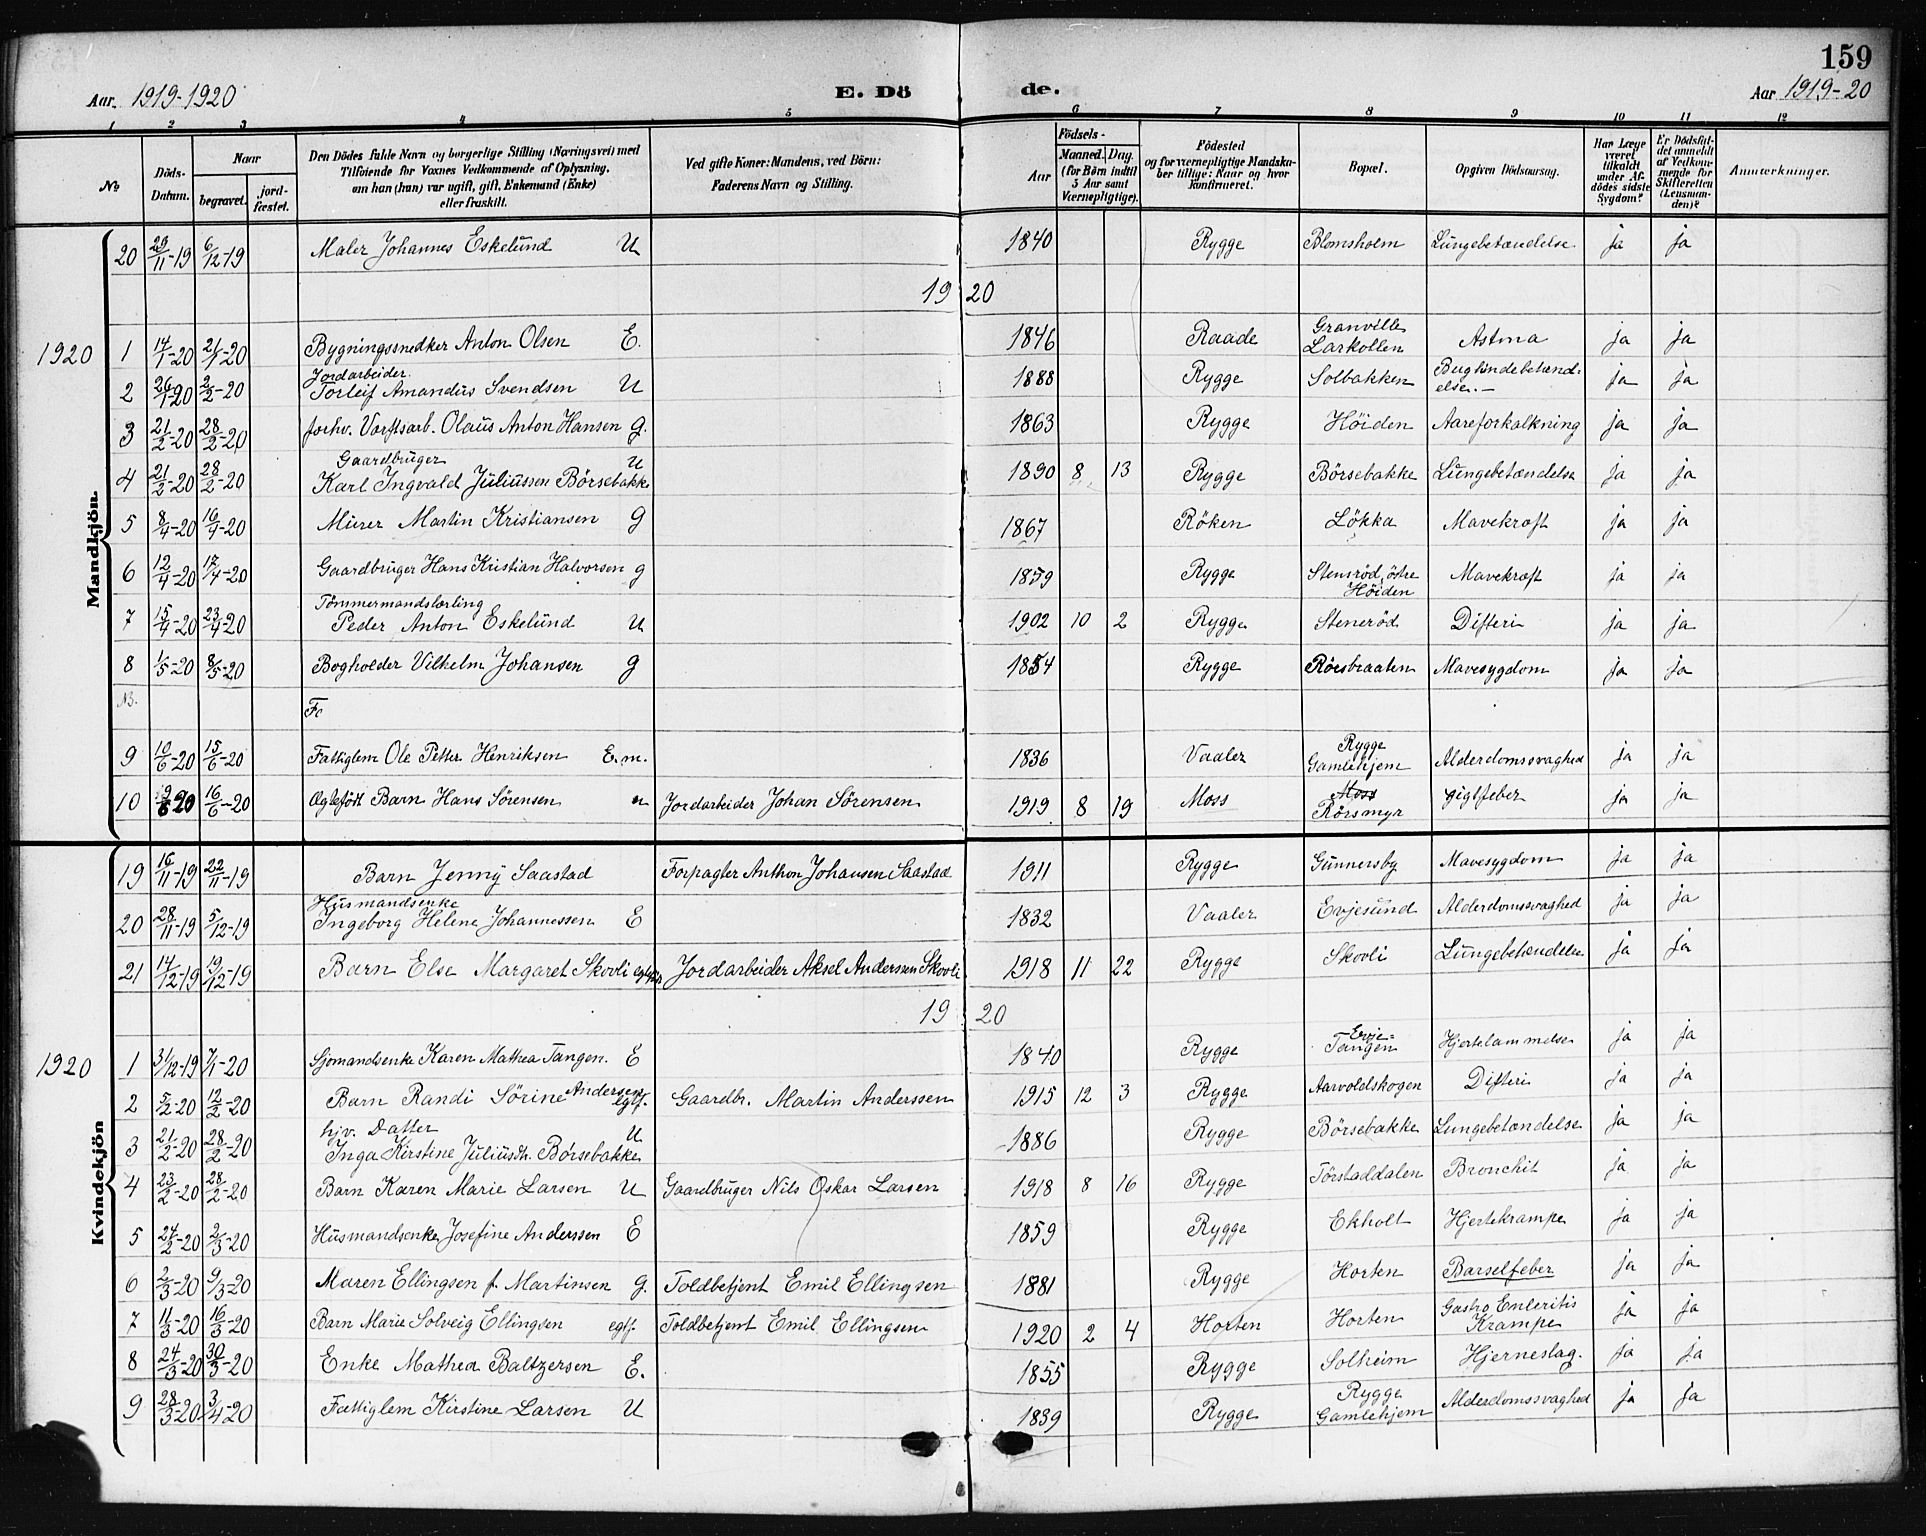 159
Aar. 1919-1920 E. Dö de. Aar 1919-20
1 2 3 4 5 6 7 8 9 10 11 12
No
Döds-Datum.
Naar
begravet.
jord-fæstet.
Den Dödes fulde Navn og borgerlige Stilling (Næringsvei) med
Tilföiende for Voxnes Vedkommende af Oplysning,
om han (hun) var ugift, gift, Enkemand (Enke)
eller fraskilt.
Ved gifte Koner: Mandens, ved Börn:
Faderens Navn og Stilling.
Aar
Födsels-
Maaned. Dag.
(for Börn indtil
5 Aar samt
Værnepligtige).
Födested
og for værnepligtige Mandska-
ber tillige: Naar og hvor
konfirmeret.
Bopæl.
Opgiven Dödsaarsag.
Har Læge
været
tilkaldt
under Af-
dödes sidste
Sygdom?
Er Dödsfal-
det anmeldt
af Vedkom-
mende for
Skifteretten
(Lensman-
den)?
Anmærkninger.
Mandkjön.
20 29/11-19 6/12-19 Maler Johannes Eskelund U 1840 Rygge Blomsholm Lungebetændelse ja ja
19 20
1920 1 14/1-20 21/1-20 Bygningssnedker Anton Olsen E. 1846 Raade Granville Larkollen Astma ja ja
2 26/1-20 2/2-20 Jordarbeider Torleif Amandus Svendsen U 1888 Rygge Solbakken Bughindebetændelse.- ja ja
3 21/2-20 28/2-20 forhv. Værftsarb. Olaus Anton Hansen g. 1863 Rygge Höiden Aareforkalkning ja ja
4 21/2-20 28/2-20 Gaardbruger Karl Ingvald Juliussen Börsebakke U 1890 8 13 Rygge Börsebakke Lungebetændelse ja ja
5 8/4-20 16/4-20 Murer Martin Kristiansen g 1867 Röken Lökka Mavekræft ja ja
6 12/4-20 17/4-20 Gaardbruger Hans Kristian Halvorsen g 1859 Rygge Stensröd, östre Höiden Mavekræft ja ja
7 15/4-20 23/4-20 Tömmermandslærling Peder Anton Eskelund U 1902 10 2 Rygge Steneröd Difteri ja ja
8 1/5-20 8/5-20 Bogholder Vilhelm Johansen g 1854 Rygge Rörsbraaten Mavesygdom ja ja
NB. Fo
9 10/6-20 15/6-20 Fattiglem Ole Petter Henriksen E.m. 1836 Vaaler Rygge Gamlehjem Alderdomssvaghed ja ja
10 9/6 20 16/6-20 Ægtefödt Barn Hans Sörensen u Jordarbeider Johan Sörensen 1919 8 19 Moss Moss Rörsmyr gigtfeber ja ja
Kvindekjön
19 16/11-19 22/11-19 Barn Jenny Saastad Forpagter Anthon Johansen Saastad 1911 Rygge Gunnersby Mavesygdom ja ja
20 28/11-19 5/12-19 Husmandsenke Ingeborg Helene Johannessen E 1832 Vaaler Evjesund Alderdomssvaghed ja ja
21 14/12-19 19/12-19 Barn Else Margaret Skovli egtf. Jordarbeider Aksel Anderssen Skovli 1918 11 22 Rygge Skovli Lungebetændelse ja ja
19 20
1920 1 31/12-19 7/1-20 Sjomandsenke Karen Mathea Tangen. E 1840 Rygge Evje-Tangen Hjertelammelse ja ja
2 5/2-20 12/2-20 Barn Randi Sörine Andersen egtf. Gaardbr. Martin Anderssen 1915 12 3 Rygge Aarvoldskogen Difteri ja ja
3 21/2-20 28/2-20 hjv. Datter Inga Kirstine Juliusdt. Börsebakke U 1886 Rygge Börsebakke Lungebetændelse ja ja
4 23/2-20 28/2-20 Barn Karen Marie Larsen U Gaardbruger Nils Oskar Larsen 1918 8 16 Rygge Törstaddalen Bronchit ja ja
5 24/2-20 2/3-20 Husmandsenke Josefine Anderssen E 1859 Rygge Ekholt Hjertekrampe ja ja
6 2/3-20 9/3-20 Maren Ellingsen f. Martinsen g. Toldbetjent Emil Ellingsen 1881 Rygge Horten Barselfeber ja ja
7 11/3-20 16/3-20 Barn Marie Solveig Ellingsen egtf. Toldbetjent Emil Ellingsen 1920 2 4 Horten Horten Gastro Enteritis Krampe ja ja
8 24/3-20 30/3-20 Enke Mathea Baltzersen E. 1855 Rygge Solheim Hjerneslag. ja ja
9 28/3-20 3/4-20 Fattiglem Kirstine Larsen U 1839 Rygge Rygge Gamlehjem Alderdomssvaghed ja ja